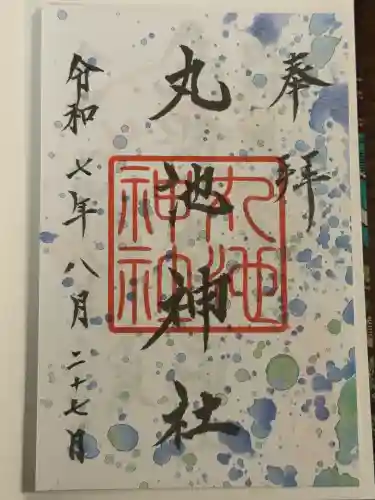 奉拝
丸池神社
令和七年八月二十七月
丸池
神社